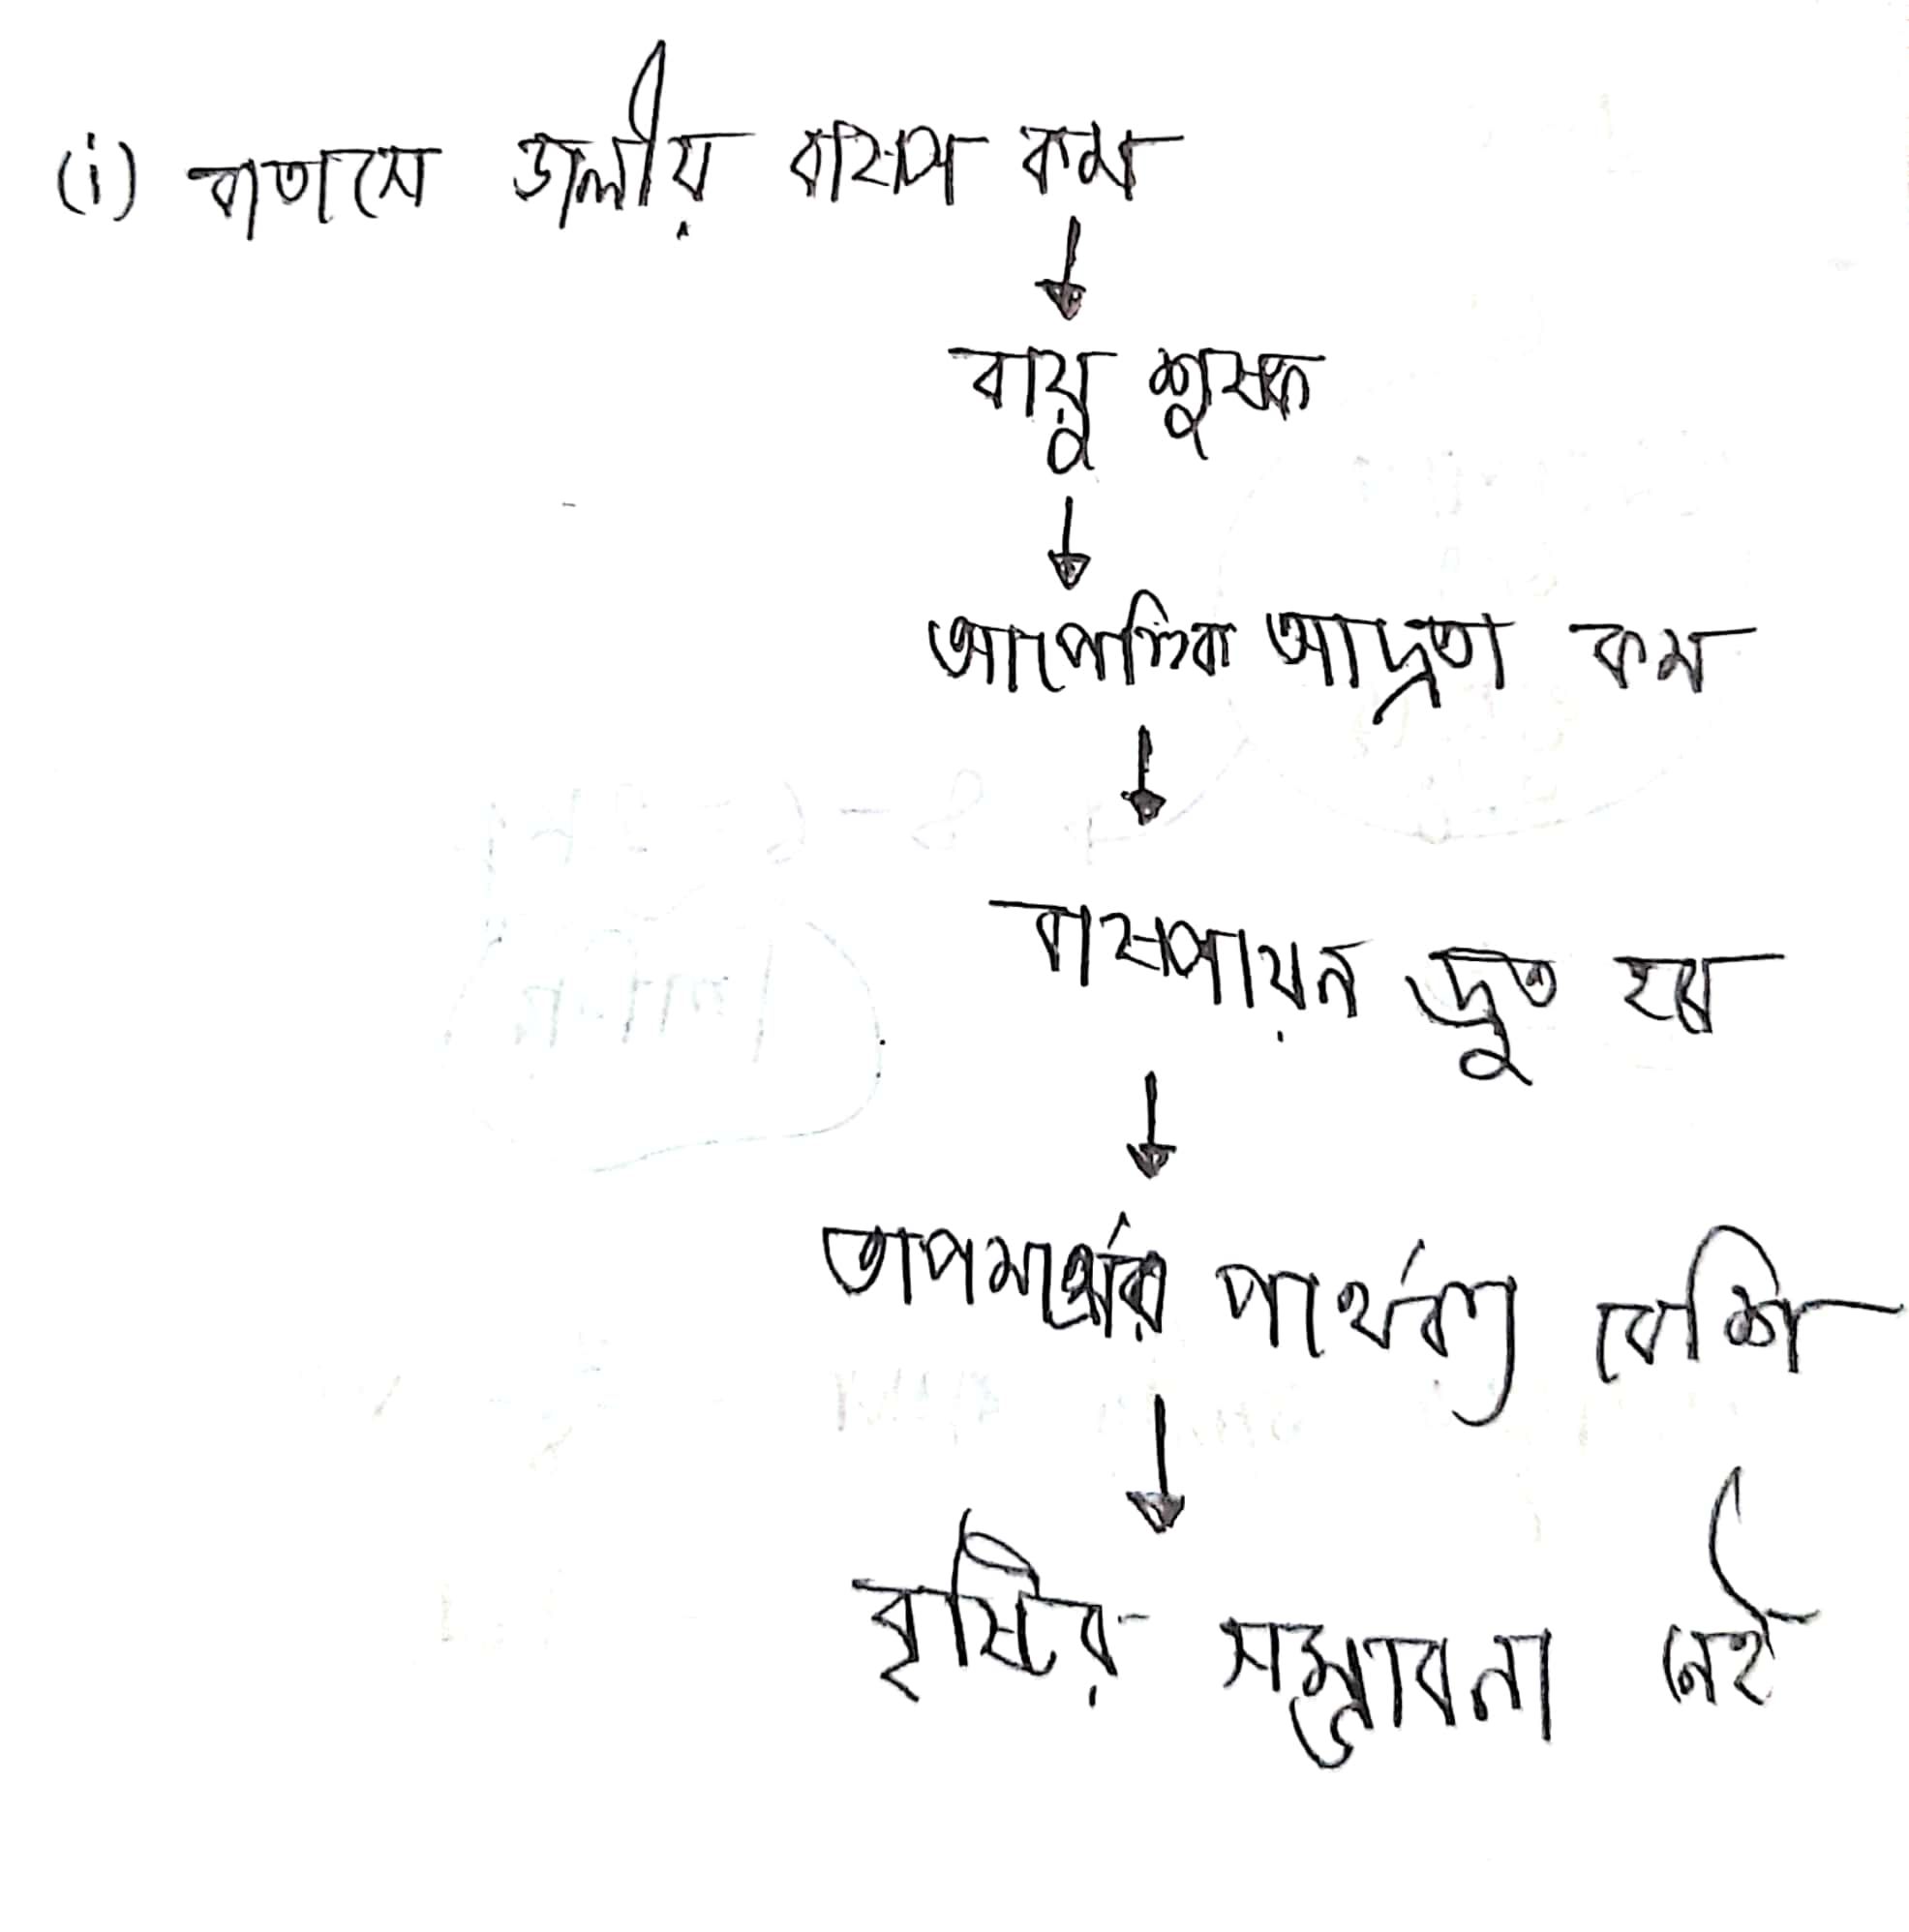 (i) বাতাসে জলীয় বাষ্প কম
বায়ু শুষ্ক
আপেক্ষিক আদ্রতা কম
বাষ্পায়ন দ্রুত হয়
তাপমাত্রার পার্থক্য বেশি
বৃষ্টির সম্ভাবনা নেই